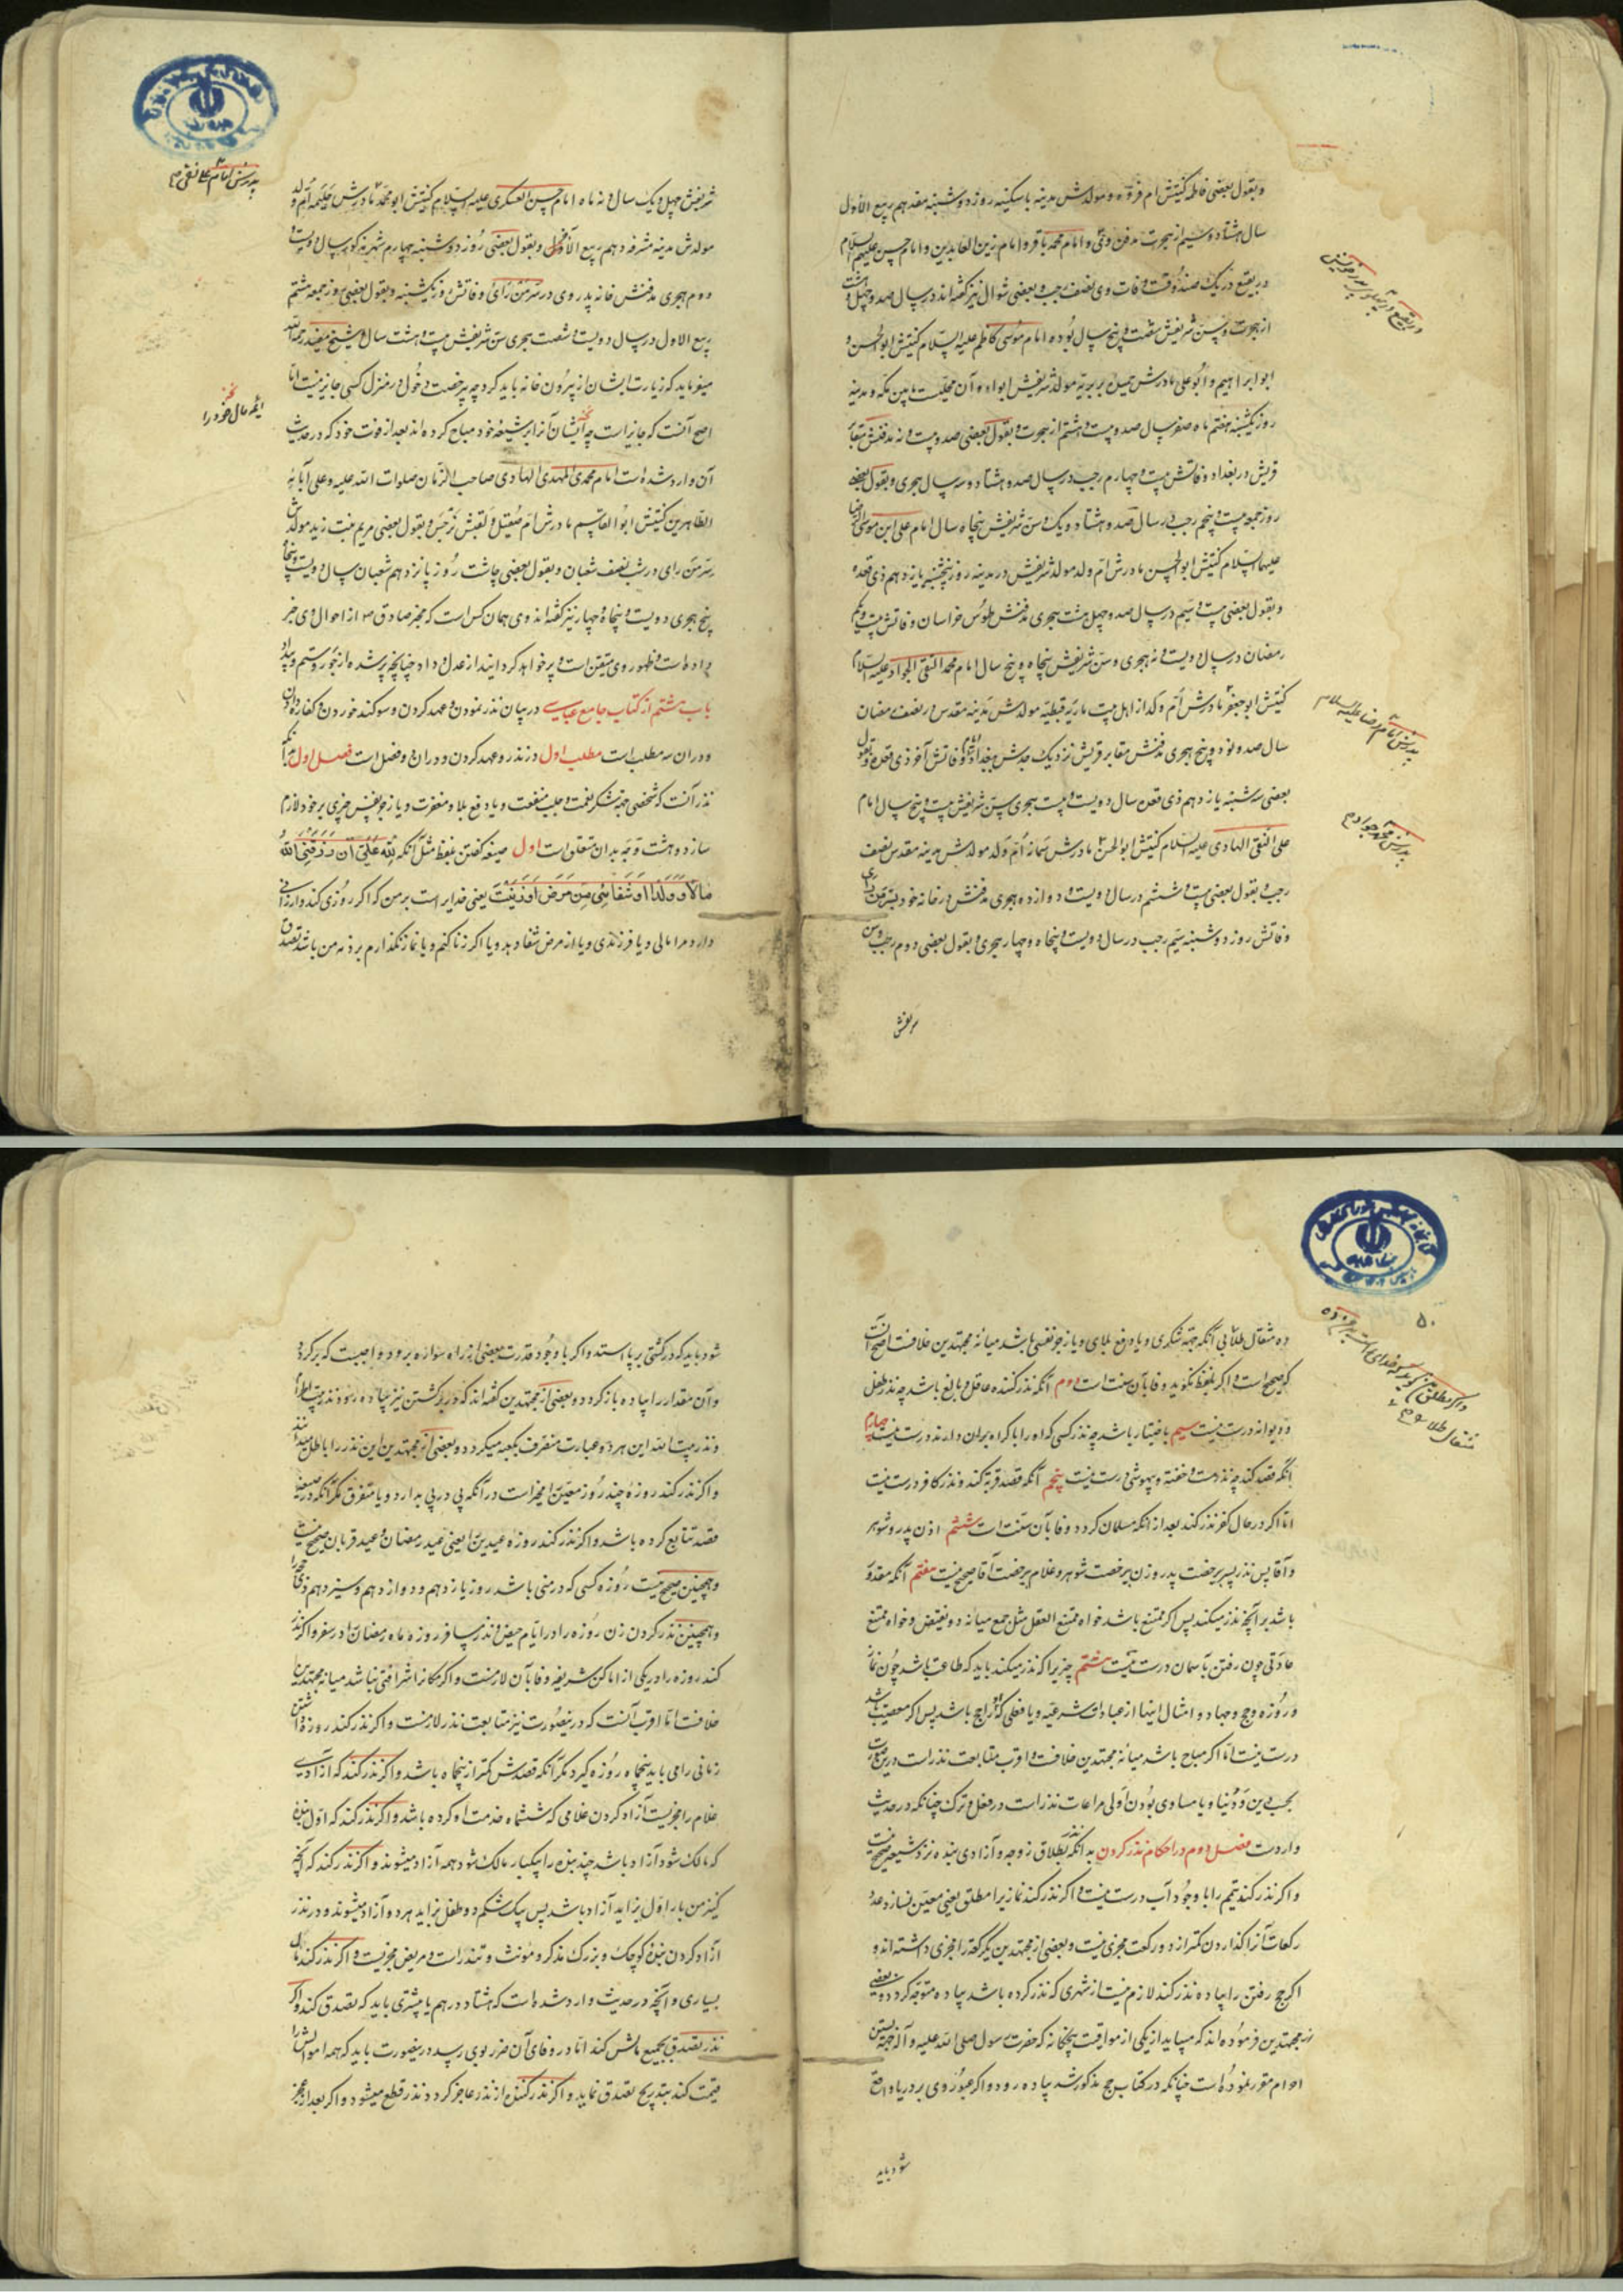 وبقول بعضی فاطمه کنیتش ام فروه ومولدش مدینه باسکینه روز دوشنبه هفدهم ربیع الاول
سال هشتاد وسیم از هجرت مدفن وی وامام محمد باقر وامام زین العابدین وامام حسن علیهم السلام
در بقیع در یک صندوقست وفات وی نصف رجب وبعضی شوال نیز گفته‌اند در سال صد وچهل وهشت
از هجرت وسن شریفش شصت وپنج سال بوده امام موسی کاظم علیه السلام کنیتش ابوالحسن و
ابو ابراهیم وابوعلی مادرش حمیده بربریه مولد شریفش ابواء وآن محلیست مابین مکه ومدینه
روز یکشنبه هفتم ماه صفر سال صد وبیست وهشتم از هجرت وبقول بعضی صد وبیست ونه مدفنش مقابر
قریش در بغداد وفاتش بیست وچهارم رجب در سال صد وهشتاد وسه سال هجری وبقول بعضی
روز جمعه بیست وپنجم رجب در سال صد وهشتاد ویک وسن شریفش پنجاه سال امام علی ابن موسی الرضا
علیهما السلام کنیتش ابوالحسن مادرش ام ولد مولد شریفش در مدینه روز پنجشنبه یازدهم ذی قعده
وبقول بعضی بیست وسیم در سال صد وچهل هشت هجری مدفنش طوس خراسان وفاتش بیست ویکم
رمضان در سال دویست ونه هجری وسن شریفش پنجاه وپنج سال امام محمد التقی الجواد علیه السلام
کنیتش ابوجعفر مادرش ام ولد از اهل بیت ماریه قبطیه مولدش مدینه مقدس در نصف رمضان
سال صد ونود وپنج هجری مدفنش مقابر قریش نزدیک جدش ببغداد وفاتش آخر ذی قعده وبقول
بعضی سه شنبه یازدهم ذی قعده سال دویست وبیست هجری سن شریفش بیست وپنج سال امام
علی النقی الهادی علیه السلام کنیتش ابوالحسن مادرش سمانه ام ولد مولدش مدینه مقدس نصف
رجب وبقول بعضی بیست وششم در سال دویست ودوازده هجری مدفنش در خانه خود بسر من رای
وفاتش روز دوشنبه سیم رجب در سال دویست وپنجاه وچهار هجری وبقول بعضی دوم رجب وسن
شریفش
پدرش امام رضا علیه السلام
پدرش محمد جواد م
شریفش چهل ویک سال ونه ماه امام حسن العسکری علیه السلام کنیتش ابومحمد مادرش حدیثه ام ولد
مولدش مدینه مشرفه دهم ربیع الآخر وبقول بعضی روز دوشنبه چهارم شهر مذکور سال دویست و
دوم هجری مدفنش خانه پدر وی در سر من رای وفاتش روز یکشنبه وبقول بعضی روز جمعه هشتم
ربیع الاول در سال دویست وشصت هجری سن شریفش بیست وهشت سال وشیخ مفید رحمه الله
میفرماید که زیارت ایشان از بیرون خانه باید کرد چه بی رخصت دخول در منزل کسی جایز نیست اما
اصح آنست که جایز است چه ایشان آنرا بر شیعه خود مباح کرده‌اند بعد از فوت خود که در حدیث
آن وارد شده است امام محمد المهدی الهادی صاحب الزمان صلوات الله علیه وعلی آبائه
الطاهرین کنیتش ابوالقاسم مادرش ام صقیل ولقبش نرجس وبقول بعضی مریم بنت زید مولدش
سر من رای در شب نصف شعبان وبقول بعضی چاشت روز پانزدهم شعبان سال دویست وپنجاه
پنج هجری دویست وپنجاه وچهار نیز گفته‌اند وی همان کس است که مخبر صادق ص از احوال وی خبر
داده است وظهور وی متیقن است وپر خواهد کرد دنیا را از عدل وداد چنانچه پر شده از جور وستم وبیداد
باب هشتم از کتاب جامع عباسی در بیان نذر نمودن وعهد کردن وسوگند خوردن وکفاره دادن
ودر ان سه مطلب است مطلب اول در نذر وعهد کردن ودر ان دو فصل است فصل اول
نذر آنست که شخصی جهة شکر نعمت وجلب منفعت ویا دفع بلا ومغفرت ویا زجر نفس چیزی بر خود لازم
سازد وهشت وجه بدان متعلق است اول صیغه گفتن بلفظ مثل آنکه لله علی ان رزقنی الله
مالا او ولدا او شفانی من مرض او زنیت یعنی خدایراست بر من که اگر روزی کند وارزانی
دارد مرا مالی ویا فرزندی ویا از مرض شفا دهد ویا اگر زنا کنم ویا نماز نگذارم بر ذمه من باشد تصدق
پدرش امام علی نقی م
ائمه مال خود را
ده مثقال طلا بی آنکه جهة شکری ویا دفع بلای ویا زجر نفسی باشد میانه مجتهدین خلافست اصح آنست
که صحیح است واگر بلفظ نگوید وفا بآن سنت است دوم آنکه نذر کننده عاقل وبالغ باشد چه نذر طفل
ودیوانه درست نیست سیم با ختیار باشد چه نذر کسی که اورا با کراه بران دارند درست نیست چهارم
آنکه قصد کند چه نذر مست وخفته وبیهوش درست نیست پنجم آنکه قصد قربة کند ونذر کافر درست نیست
اما اگر در حال کفر نذر کند بعد از انکه مسلمان گردد وفا بآن سنت است ششم اذن پدر وشوهر
وآقا پس نذر پسر بیرخصت پدر وزن بیرخصت شوهر وغلام بیرخصت آقا صحیح نیست هفتم آنکه مقدور
باشد بر آنچه نذر میکند پس اگر ممتنع باشد خواه ممتنع العقل مثل جمع میانه دو نقیض وخواه ممتنع
عادتی چون رفتن بآسمان درست نیست هشتم چیزیرا که نذر میکند باید که طاعت باشد چون نماز
وروزه وحج وجهاد وامثال اینها از عبادات شرعیه ویا فعلی که او راجح باشد پس اگر معصیت باشد
درست نیست اما اگر مباح باشد میانه مجتهدین خلافست واقرب متابعت نذر است درین صورت
بحسب دین ودنیا ویا مساوی بودن اولی مراعات نذر است در فعل وترک چنانکه در حدیث
واردست فصل دوم در احکام نذر کردن بدانکه نذر بطلاق زوجه وآزادی بنده نزد شیعه صحیح نیست
واگر نذر کند تیمم را با وجود آب درست نیست واگر نذر کند نماز یرا مطلق یعنی معین نسازد عدد
رکعات آنرا گذاردن کمتر از دو رکعت مجزی نیست وبعضی از مجتهدین یکرکعت را مجزی داشته‌اند و
اگر حج رفتن را پیاده نذر کند لازم نیست از شهری که نذر کرده باشد پیاده متوجه گردد وبعضی
از مجتهدین فرموده‌اند که میباید از یکی از مواقیت پنجگانه که حضرت رسول صلی الله علیه وآله جهة بستن
احرام مقرر نموده است چنانکه در کتاب حج مذکور شد پیاده رود واگر عبور وی بر دریا واقع
شود باید
۵۰
شود باید که در کشتی بر پا ایستد واگر با وجود قدرت بعضی از راه سواره برود واجبست که برگردد
وآن مقدار را پیاده باز گردد وبعضی از مجتهدین گفته‌اند که در برگشتن نیز پیاده رود
ونذر بیت الله این هر دو عبارت منصرف بکعبه میگردد وبعضی از مجتهدین این نذر را باطل میدانند
واگر نذر کند روزه چند روز معین را مخیر است در آنکه پی در پی بدارد ویا متفرق مگر آنکه در صیغه
قصد تتابع کرده باشد واگر نذر کند روزه عیدین را یعنی عید رمضان وعید قربان صحیح نیست
وهمچنین صحیح نیست روزه کسی که در منی باشد روز یازدهم ودوازدهم وسیزدهم ذی حجه را
وهمچنین نذر کردن زن روزه را در ایام حیض ونذر مسافر روزه ماه رمضان را در سفر واگر نذر
کند روزه را در یکی از اماکن شریفه وفا بآن لازمست واگر مکانرا شرافتی نباشد میانه مجتهدین
خلافست اما اقرب آنست که درینصورت نیز متابعت نذر لازمست واگر نذر کند روزه داشتن
زمانی را می باید پنجماه روزه گیرد مگر آنکه قصدش کمتر از پنجماه باشد واگر نذر کند که آزاد
غلام را مجزیست آزاد کردن غلامی که ششماه خدمت او کرده باشد واگر نذر کند که اول بنده
که مالک شود آزاد باشد چند بنده را بیکبار مالک شود همه آزاد میشوند واگر نذر کند که آنچه
کنیز من بار اول بزاید آزاد باشد پس بیک شکم دو طفل بزاید هر دو آزاد میشوند ودر نذر
ازاد کردن بنده کوچک وبزرگ مذکر ومونث وتندرست ومریض مجزیست واگر نذر کند مال
بسیاری را آنچه در حدیث وارد شده است که هشتاد درهم یا بیشتری باید که تصدق کند واگر
نذر تصدق بجمیع مالش کند اما در وفای آن ضرر بوی رسد درینصورت باید که همه اموالش را
قیمت کند بتدریج تصدق نماید واگر نذر کننده از نذر عاجز گردد نذر قطع میشود واگر بعد از عجز